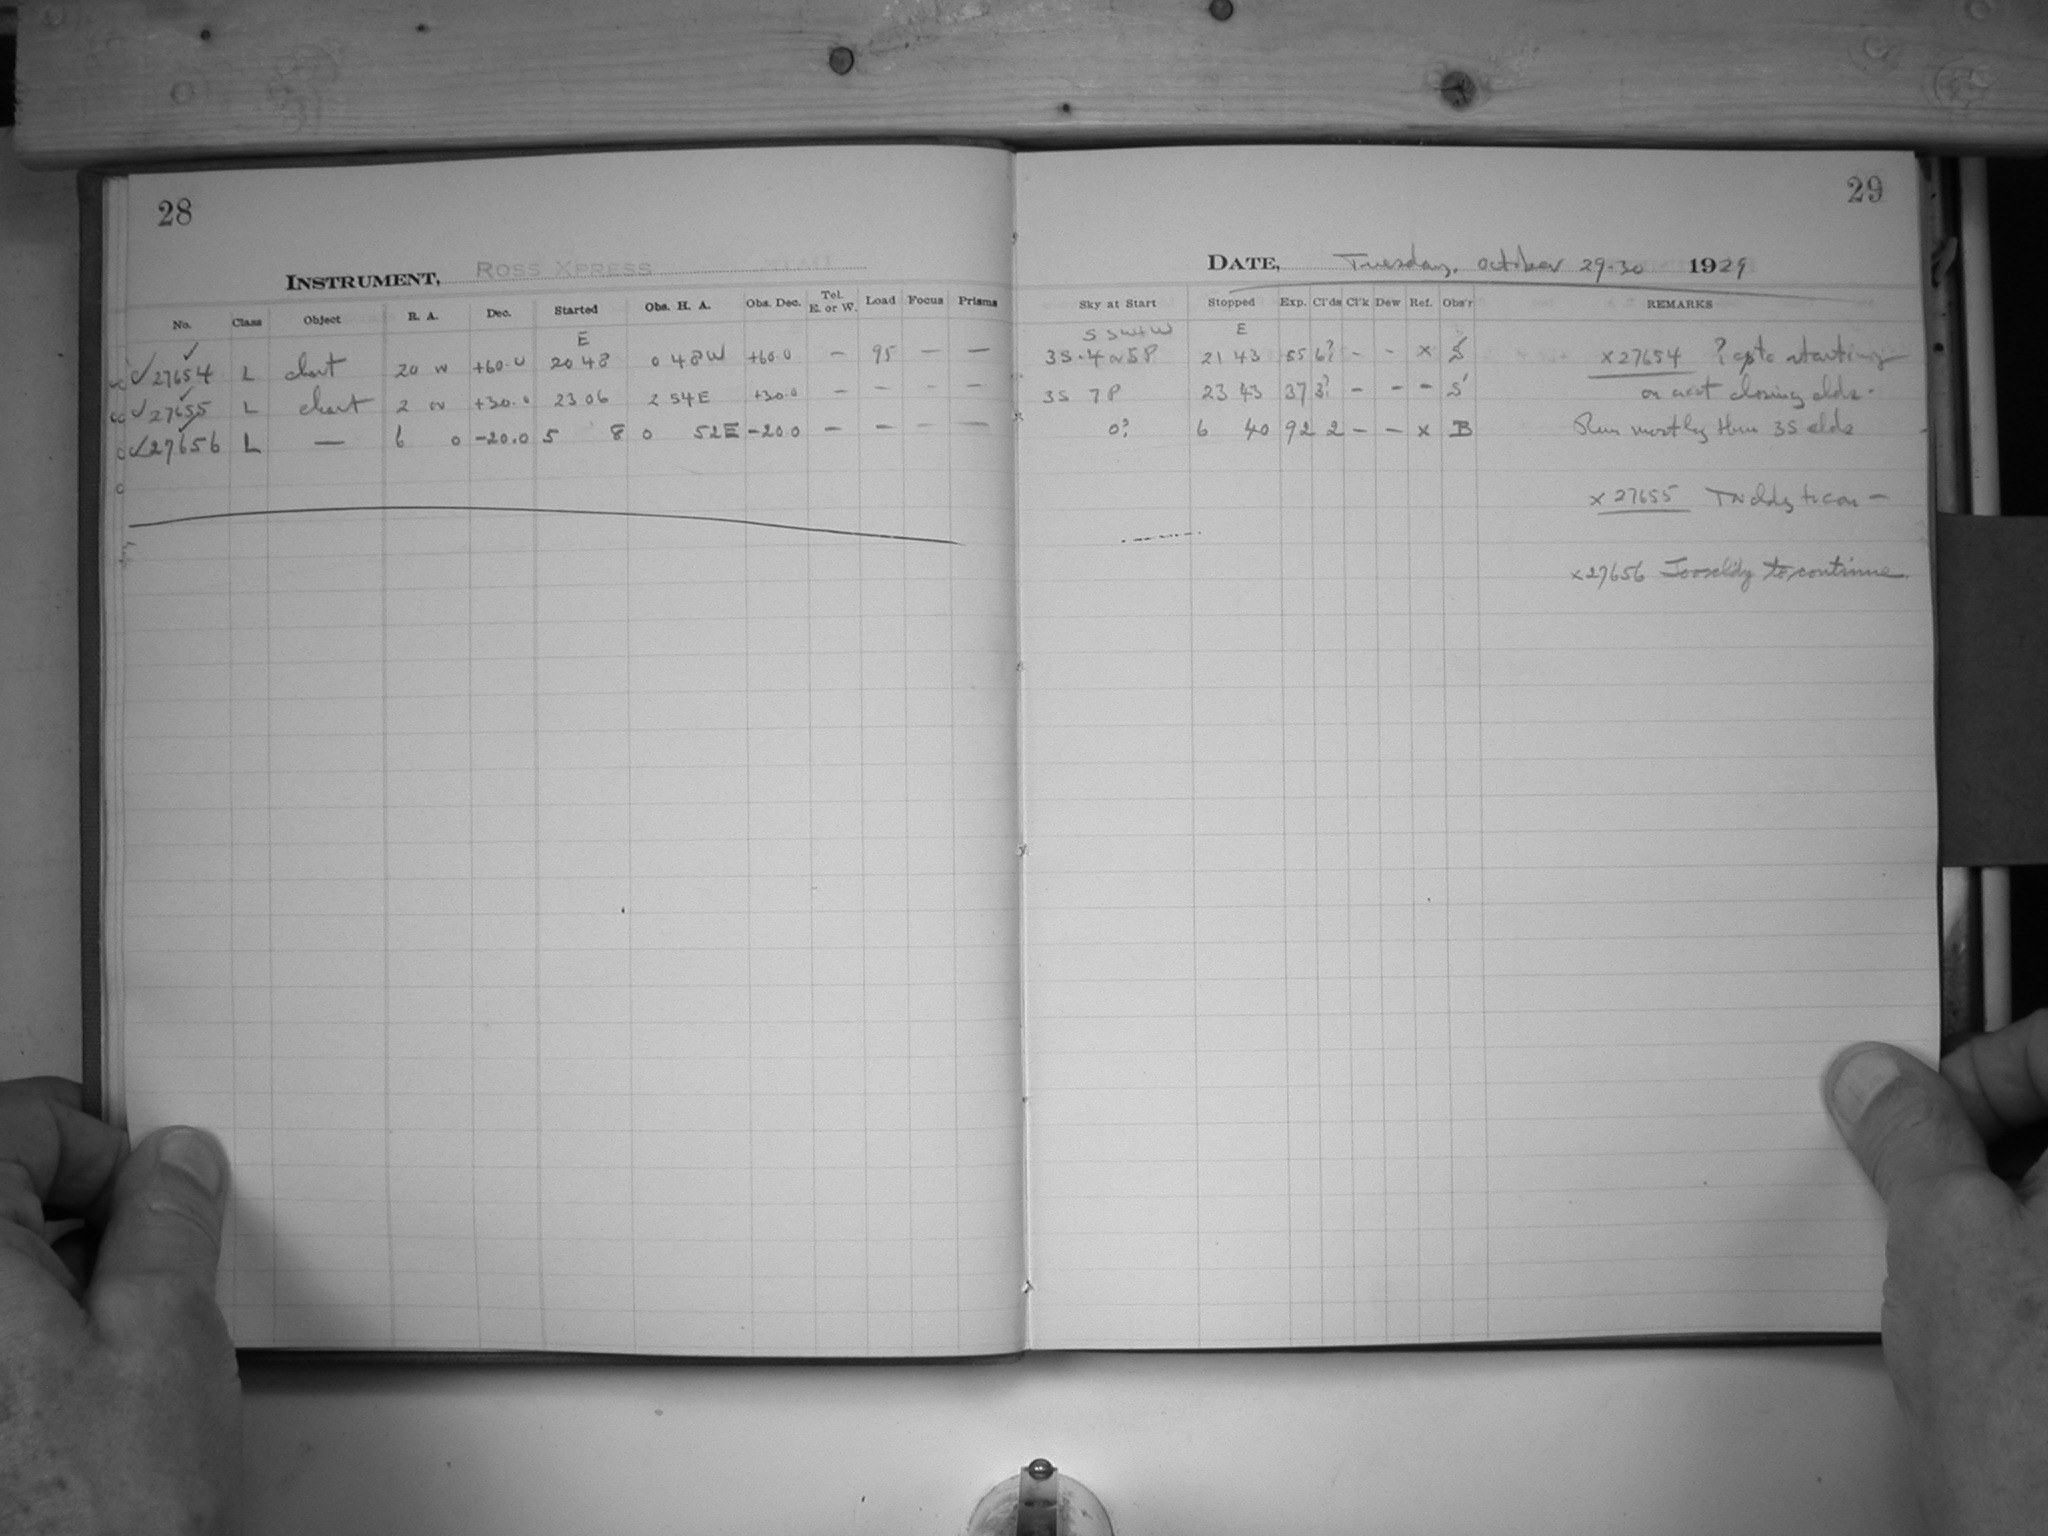 28
INSTRUMENT, ROSS XPRESS
No. Class Object R. A. Dec. Started Obs. H. A. Obs. Dec. Tel. E. or W. Load Focus Prisms
E
✓27654 L chart 20 w +60.0 20 48 0 48W +60.0 — 95 — —
✓27655 L chart 2 w +30.0 23 06 2 54E +30.0 — — — — —
✓27656 L — 6 0 -20.0 5 8 0 52E -20.0 — — — — —
29
DATE, Tuesday, October 29-30 1929
Sky at Start Stopped Exp. Cl'ds Cl'k Dew Ref. Obs'r REMARKS
E
3S 21 43 55 6? - - x S x27654 starting
3S 7P 23 43 37 3? - - - S or closing clds.
0? 6 40 92 2 - - x B Run mostly thru 3S clds
x 27655
x27656 to continue